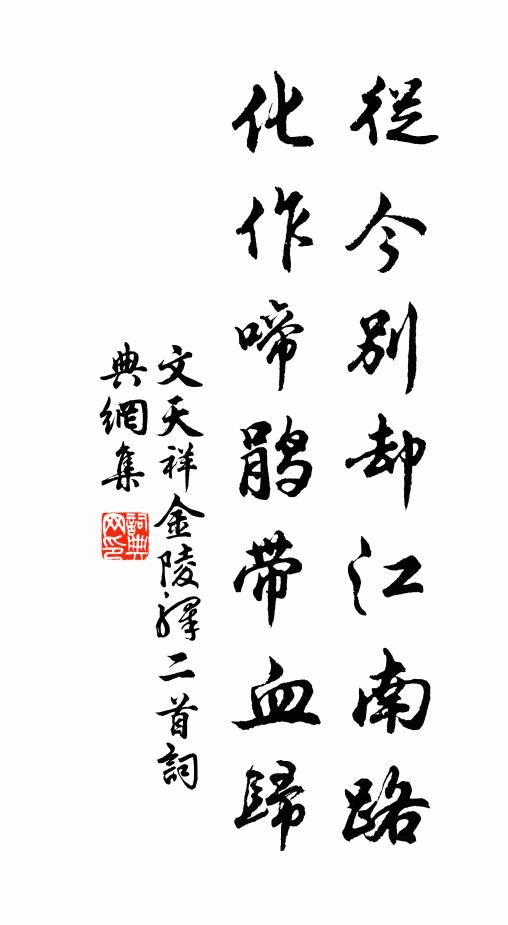 從今別却江南路
化作啼鹃带血歸
文天祥金陵驛二首詞
典網集
詞典網印